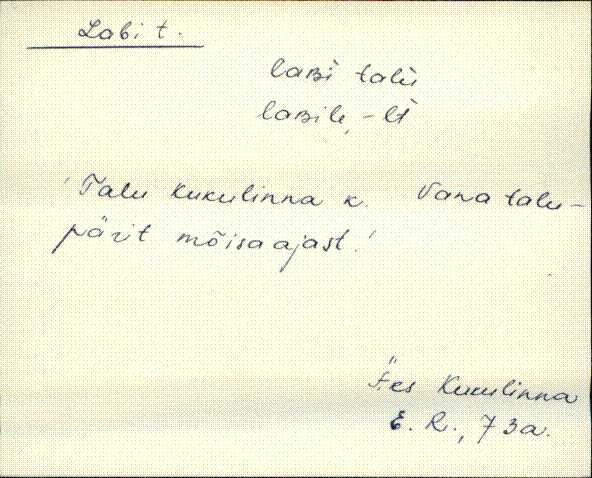 Labi t.
laʙi talu
laʙile, -lt
'Talu Kukulinna k. Vana talu -
pärit mõisaajast.'
Äks Kukulinna
E. R., 73a.